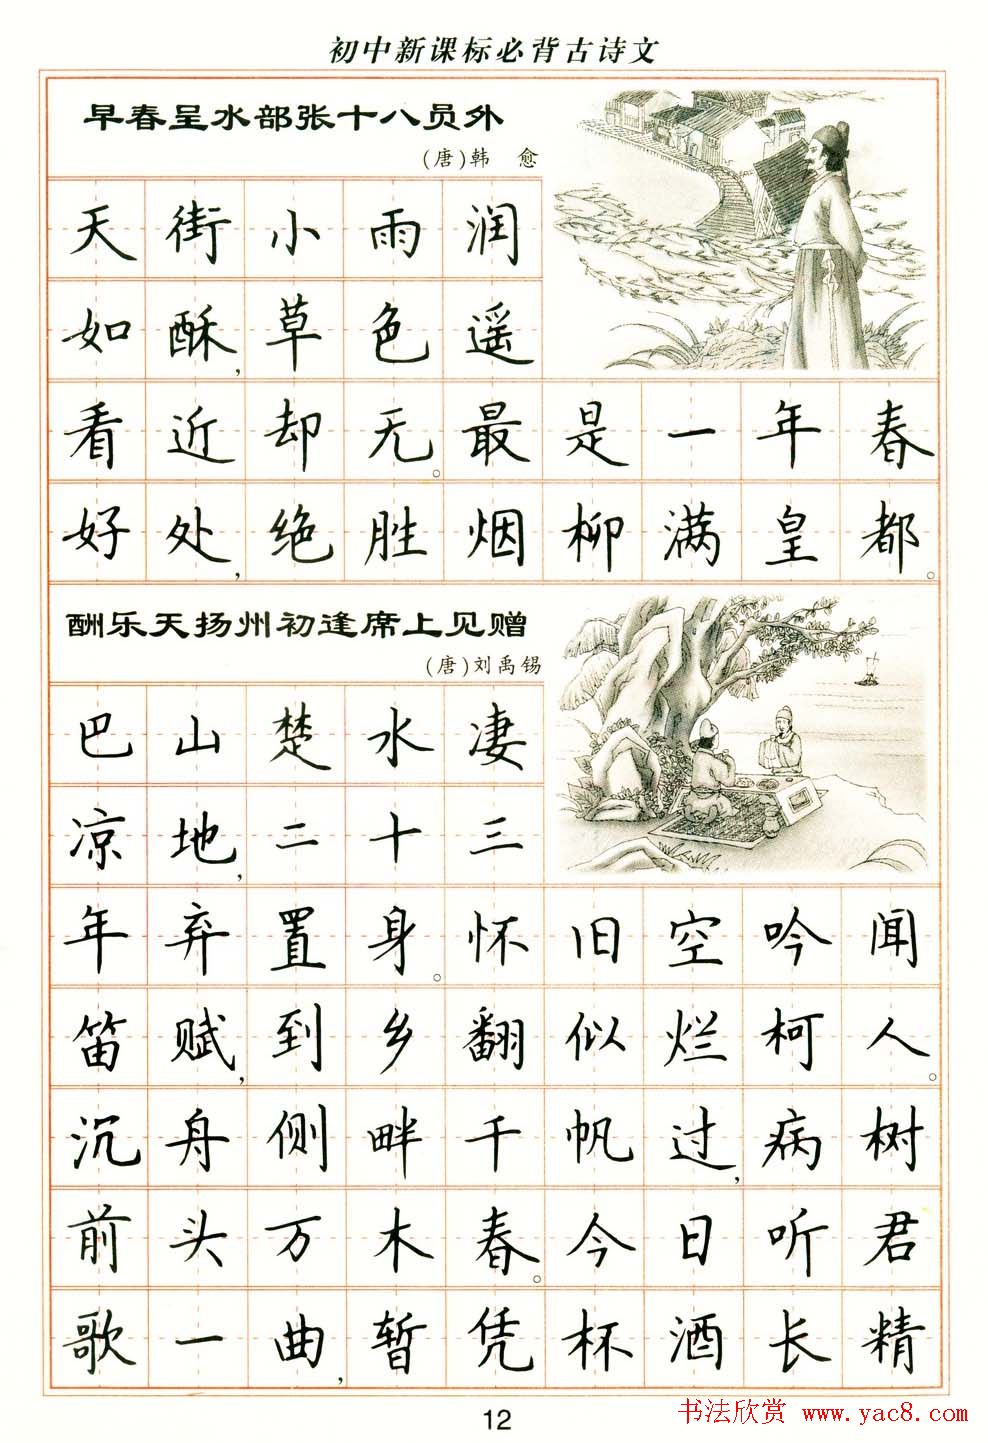 初中新课标必背古诗文
早春呈水部张十八员外
(唐)韩 愈
天街小雨润
如酥,草色遥
看近却无。最是一年春
好处,绝胜烟柳满皇都。
酬乐天扬州初逢席上见赠
(唐)刘禹锡
巴山楚水凄
凉地,二十三
年弃置身。怀旧空吟闻
笛赋,到乡翻似烂柯人。
沉舟侧畔千帆过,病树
前头万木春。今日听君
歌一曲,暂凭杯酒长精
12
书法欣赏 www.yac8.com